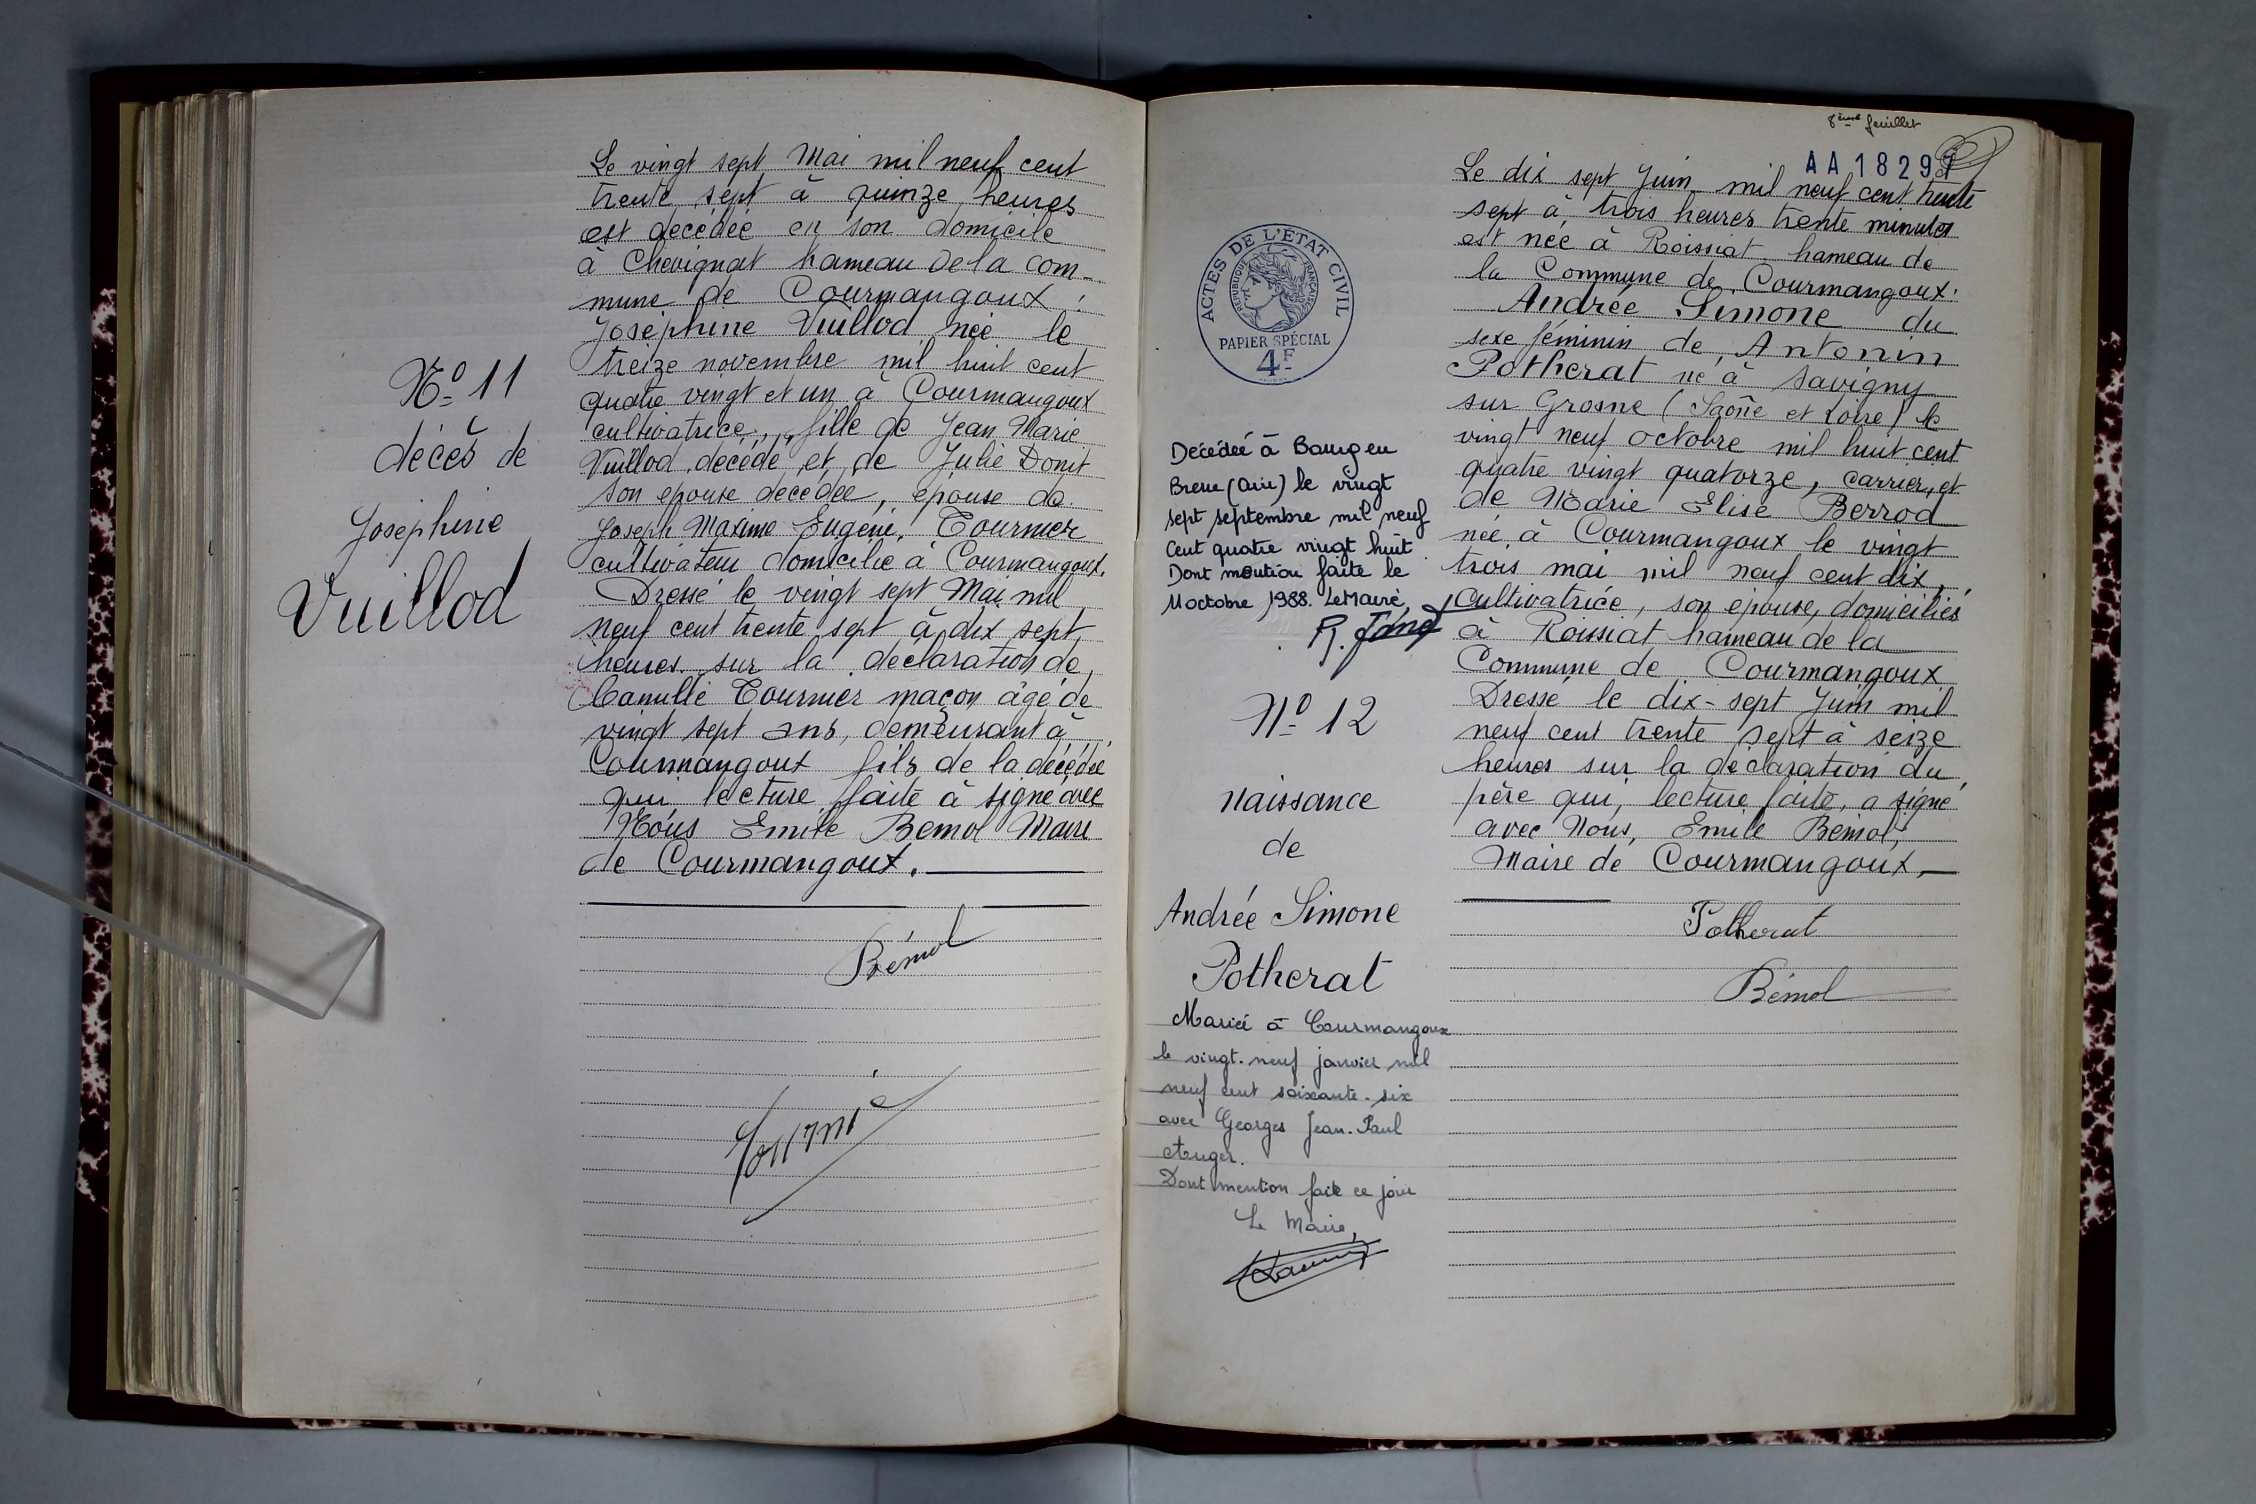 N° 11
décès de
Joséphine
Vuillod
Le vingt sept Mai mil neuf cent
trente sept à quinze heures
est décédée en son domicile
à Chevignat hameau de la com-
mune de Courmangoux :
Joséphine Vuillod née le
treize novembre mil huit cent
quatre vingt et un à Courmangoux
cultivatrice, fille de Jean Marie
Vuillod décédé et de Julie Donit
son épouse décédée, épouse de
Joseph Maxime Eugène, Tournier
cultivateur domicilié à Courmangoux.
Dressé le vingt sept Mai mil
neuf cent trente sept à dix sept
heures sur la déclaration de
Camille Tournier maçon âgé de
vingt sept ans, demeurant à
Courmangoux fils de la décédée
qui lecture faite à signé avec
Nous Emile Bémol Maire
de Courmangoux.
Bémol
8ème feuillet
AA 18297
ACTES DE L'ÉTAT CIVIL
RÉPUBLIQUE FRANÇAISE
PAPIER SPÉCIAL
4F
Décédée à Bourg en
Bresse (Ain) le vingt
sept septembre mil neuf
cent quatre vingt huit
Dont mention faite le
11 octobre 1988. Le Maire,
N° 12
Naissance
de
Andrée Simone
Potherat
Mariée à Courmangoux
le vingt-neuf janvier mil
neuf cent soixante-six
avec Georges Jean-Paul
Auger.
Dont mention faite ce jour
Le Maire,
Le dix sept Juin mil neuf cent trente
sept à trois heures trente minutes
est née à Roissiat hameau de
la Commune de Courmangoux :
Andrée Simone du
sexe féminin de Antonin
Potherat né à Savigny
sur Grosne (Saône et Loire) le
vingt neuf octobre mil huit cent
quatre vingt quatorze, carrier, et
de Marie Elise Berrod
née à Courmangoux le vingt
trois mai mil neuf cent dix,
cultivatrice, son épouse, domiciliés
à Roissiat hameau de la
Commune de Courmangoux
Dressé le dix-sept Juin mil
neuf cent trente sept à seize
heures sur la déclaration du
père qui, lecture faite, a signé
avec Nous, Emile Bémol,
Maire de Courmangoux,
Potherat
Bémol